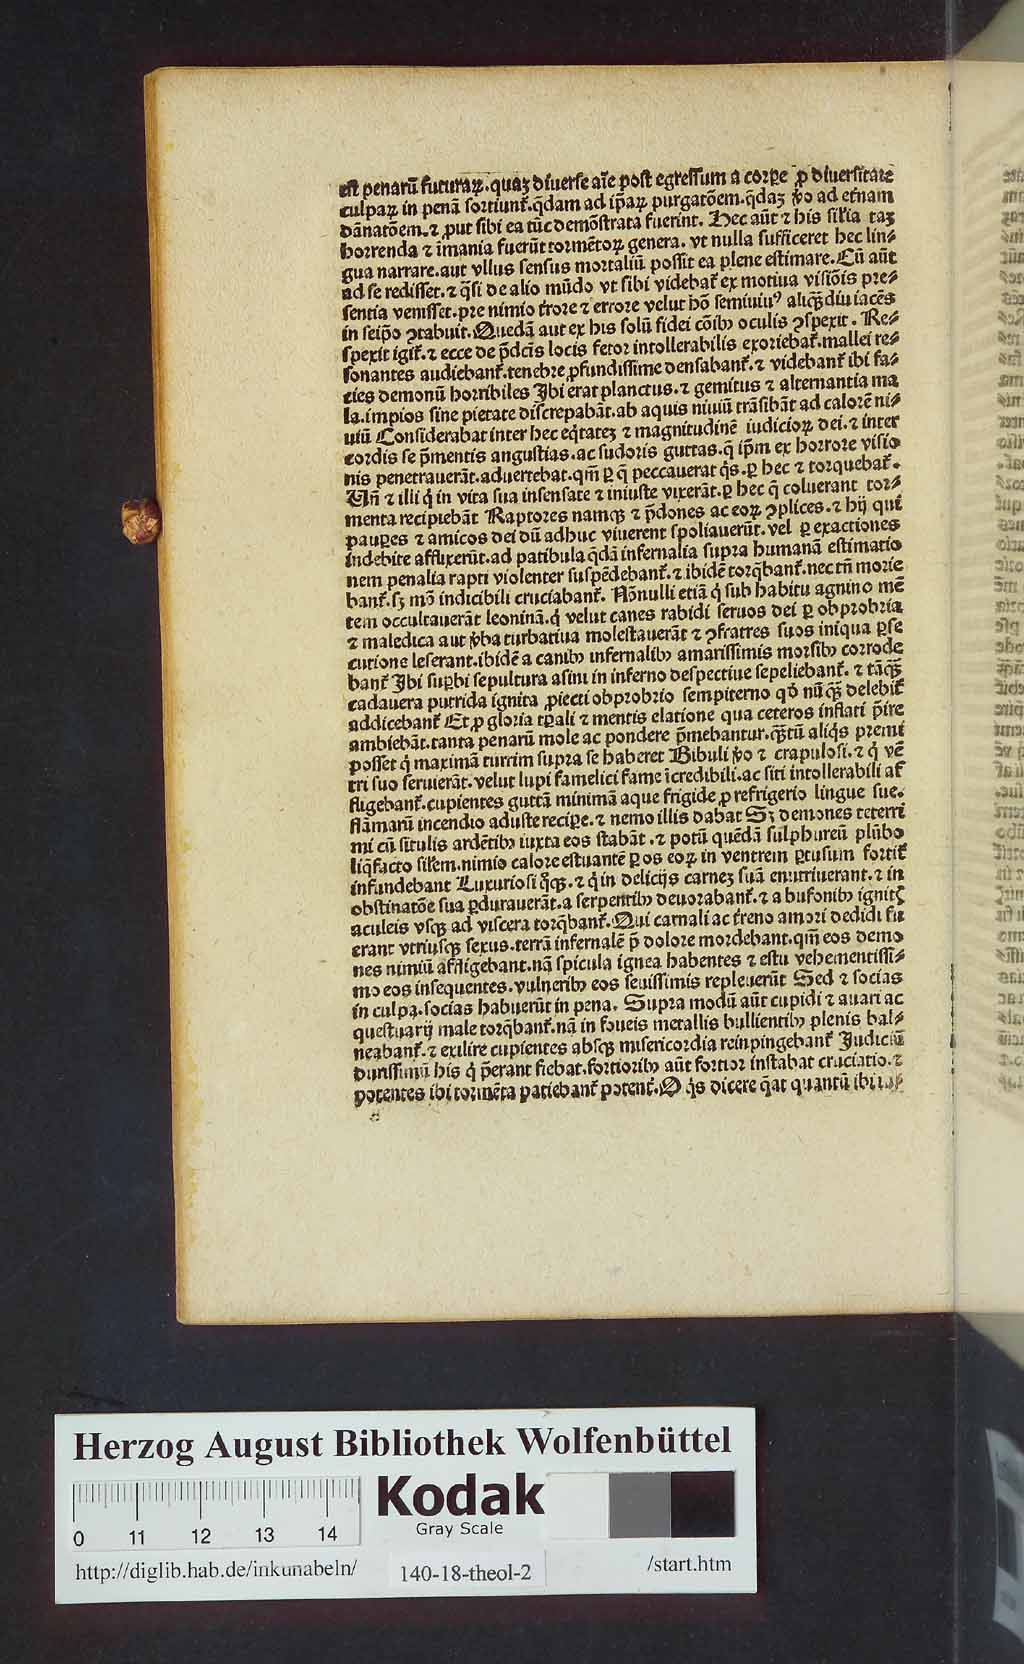 est penarū futuraꝝ. quaꝫ diuerse aīe post egressum a corꝑe ꝓ diuersitate
culpaꝝ in penā sortiunt̃. q̄dam ad ip̄aꝝ purgatōem. q̄daꝫ ꝟo ad et̃nam
dānatōem. ⁊ ꝓut sibi ea tūc demōstrata fuerint. Hec aūt ⁊ his sil̃ia taꝫ
horrenda ⁊ īmania fuerūt tormētoꝝ genera. vt nulla sufficeret hec lin⸗
gua narrare. aut vllus sensus mortaliū possit ea plene estimare. Cū aūt
ad se redisset. ⁊ q̄si de alio mūdo vt sibi videbat̃ ex motiua visiōis pre⸗
sentia venisset. pre nimio t̃rore ⁊ errore velut hō semiuiuꝰ aliq̄ꝫdiu iacēs
in seip̄o ꝯtabuit. Quedā aut ex his solū fidei cōibꝫ oculis ꝯspexit. Re⸗
spexit igit̃. ⁊ ecce de p̄dc̄is locis fetor intollerabilis exoriebat̃. mallei re⸗
sonantes audiebant̃. tenebre ꝓfundissime densabant̃. ⁊ videbant̃ ibi fa⸗
cies demonū horribiles Ibi erat planctus. ⁊ gemitus ⁊ alternantia ma
la. impios sine pietate discrepabāt. ab aquis niuiū trāsibāt ad calorē ni⸗
uiū Considerabat inter hec eq̄tateꝫ ⁊ magnitudinē iudicioꝝ dei. ⁊ inter
cordis se p̄mentis angustias. ac sudoris guttas. q̄ ip̄m ex horrore visio
nis penetrauerāt. aduertebat. qm̄ ꝑ q̄ peccauerat q̄s. ꝑ hec ⁊ torquebat̃.
Vn̄ ⁊ illi q̇ in vita sua insensate ⁊ iniuste vixerāt. ꝑ hec q̄ coluerant tor⸗
menta recipiebāt Raptores namqꝫ ⁊ p̄dones ac eoꝝ ꝯplices. ⁊ hij qui
pauꝑes ⁊ amicos dei dū adhuc viuerent spoliauerūt. vel ꝑ exactiones
indebite afflixerūt. ad patibula q̄dā infernalia supra humanā estimatio
nem penalia rapti violenter suspēdebant̃. ⁊ ibidē torq̄bant̃. nec tn̄ morie
bant̃. sꝫ mō indicibili cruciabant̃. Nōnulli etiā q̇ sub habitu agnino mē
tem occultauerāt leoninā. q̇ velut canes rabidi seruos dei ꝑ obprobria
⁊ maledica aut ꝟba turbatiua molestauerāt ⁊ ꝯfratres suos iniqua ꝑse
cutione leserant. ibidē a canibꝫ infernalibꝫ amarissimis morsibꝫ corrode
bant̃ Ibi suꝑbi sepultura asini in inferno despectiue sepeliebant̃. ⁊ tāq̄ꝫ
cadauera putrida ignita ꝓiecti obprobrio sempiterno qd̄ nūq̄ꝫ delebit̃
addicebant̃ Et ꝓ gloria tꝑali ⁊ mentis elatione qua ceteros inflati p̄ire
ambiebāt. tanta penarū mole ac pondere p̄mebantur. q̄ꝫtū aliq̇s premi
posset q̇ maximā turrim supra se haberet Bibuli ꝟo ⁊ crapulosi. ⁊ q̇ vē
tri suo seruierāt. velut lupi famelici fame īcredibili. ac siti intollerabili af
fligebant̃. cupientes guttā minimā aque frigide ꝓ refrigerio lingue sue.
flāmarū incendio aduste reciꝑe. ⁊ nemo illis dabat Sꝫ demones teterri
mi cū situlis ardētibꝫ iuxta eos stabāt. ⁊ potū quēdā sulphureū plūbo
liq̄facto sil̃em. nimio calore estuantē ꝑ os eoꝝ in ventrem ꝑtusum fortit̃
infundebant Luxuriosi q̊qꝫ. ⁊ q̇ in delicijs carneꝫ suā enutriuerant. ⁊ in
obstinatōe sua ꝑdurauerāt. a serpentibꝫ deuorabant̃. ⁊ a bufonibꝫ ignitꝭ
aculeis vsqꝫ ad viscera torq̄bant̃. Qui carnali ac t̃reno amori dediti fu
erant vtriusqꝫ sexus. terrā infernalē p̄ dolore mordebant. qm̄ eos demo
nes nimiū affligebant. nā spicula ignea habentes ⁊ estu vehementissi⸗
mo eos insequentes. vulneribꝫ eos seuissimis repleuerūt Sed ⁊ socias
in culpa. socias habuerūt in pena. Supra modū aūt cupidi ⁊ auari ac
questuarij male torq̄bant̃. nā in foueis metallis bullientibꝫ plenis bal⸗
neabant̃. ⁊ exilire cupientes absqꝫ misericordia reinpingebant̃ Judiciū
durissimū his q̇ p̄erant fiebat. fortioribꝫ aūt fortior instabat cruciatio. ⁊
potentes ibi tormēta patiebant̃ potent̃. O q̇s dicere q̄at quantū ibi
Herzog August Bibliothek Wolfenbüttel
0 11 12 13 14
Kodak
Gray Scale
http://diglib.hab.de/inkunabeln/
140-18-theol-2
/start.htm